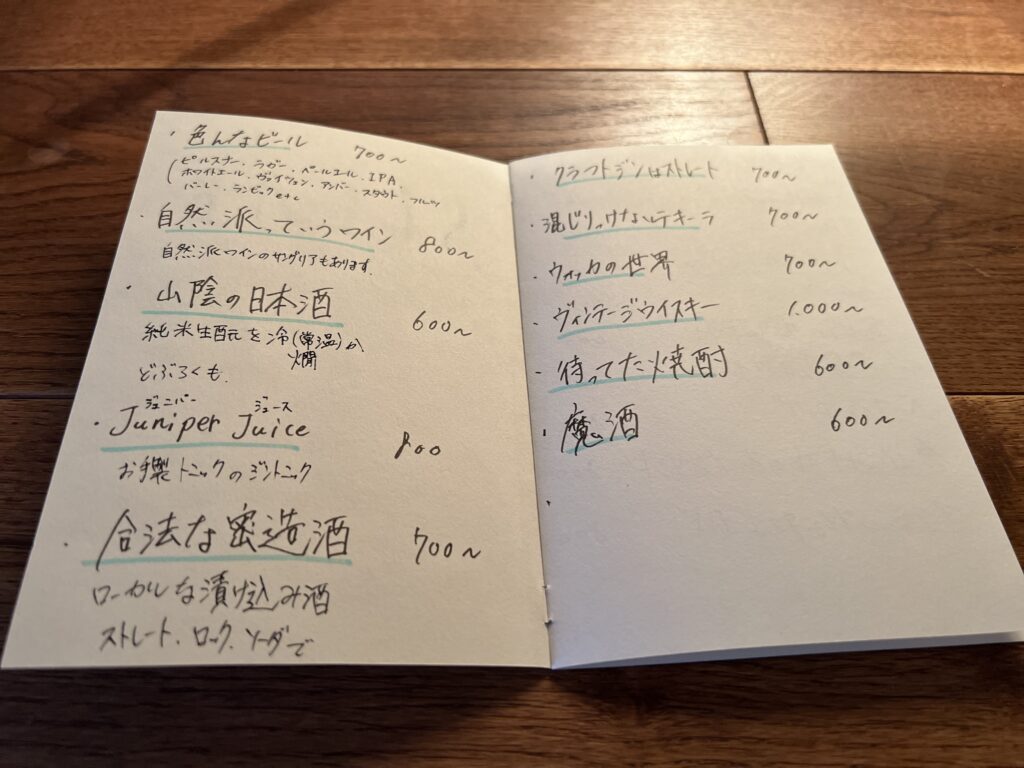 ・色んなビール 700～
(ピルスナー・ラガー・ペールエール・IPA・
ホワイトエール・ヴァイツェン・アンバー・スタウト・フルーツ
バーレー・ランビック etc
・自然派っていうワイン 800～
自然派ワインのサングリアもあります。
・山陰の日本酒 600～
純米生酛を冷(常温)か、
燗
どぶろくも。
ジュニパー ジュース
・Juniper Juice 800
お手製トニックのジントニック
・合法な密造酒 700～
ローカルな漬け込み酒
ストレート、ロック、ソーダで
・クラフトジンはストレート 700～
・混じりっけないテキーラ 700～
・ウォッカの世界 700～
・ヴィンテージウイスキー 1.000～
・待ってた焼酎 600～
・魔酒 600～
・